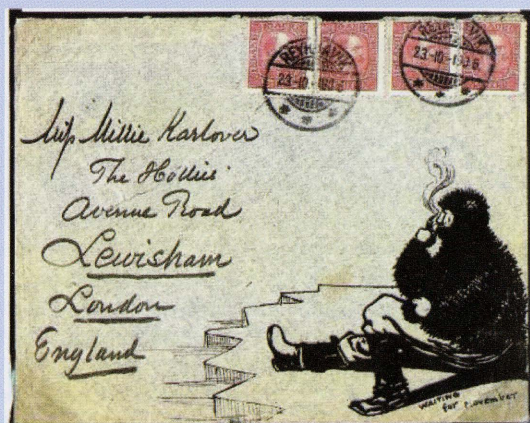 REYKJAVIK
23-10-1906
REYKJAVIK
23-10-1906
Miss Millie Karlover
The Hollies
Avenue Road
Lewisham
London
England
WAITING
for November